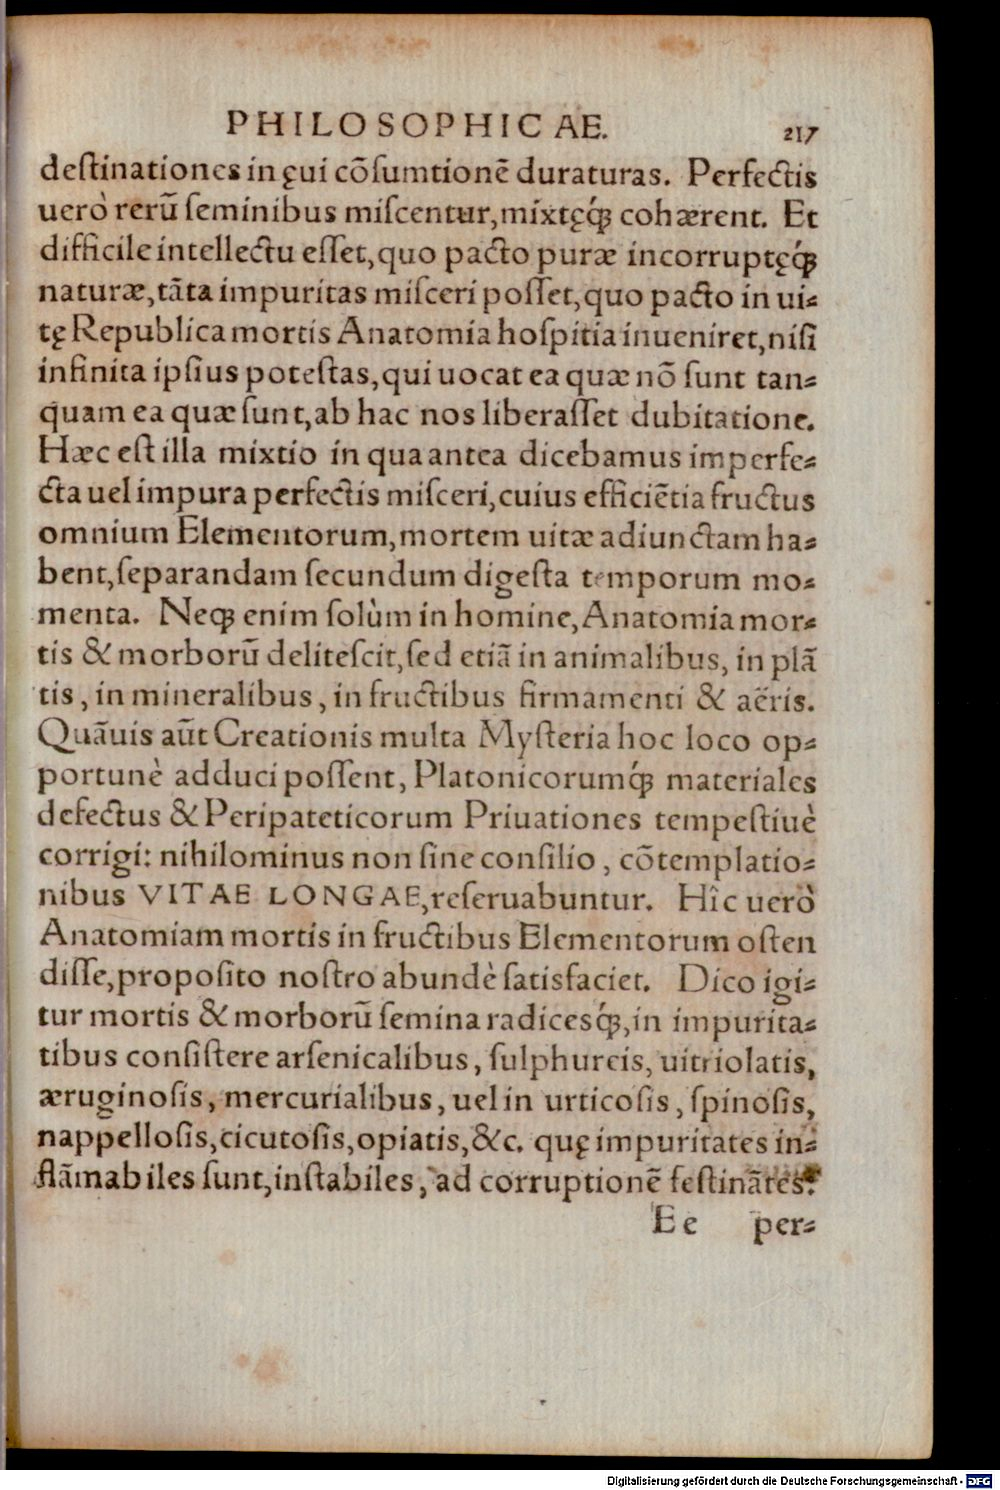 PHILOSOPHICAE. 217
deſtinationes in ęui cōſumtionē duraturas. Perfectis
uerò rerū ſeminibus miſcentur,mixtęq́; cohærent. Et
difficile intellectu eſſet,quo pacto puræ incorruptęq́;
naturæ,tāta impuritas miſceri poſſet,quo pacto in ui⸗
tę Republica mortis Anatomia hoſpitia inueniret,niſi
infinita ipſius poteſtas,qui uocat ea quæ nō ſunt tan⸗
quam ea quæ ſunt,ab hac nos liberaſſet dubitatione.
Hæc eſt illa mixtio in qua antea dicebamus imperfe⸗
cta uel impura perfectis miſceri,cuius efficiētia fructus
omnium Elementorum,mortem uitæ adiunctam ha⸗
bent,ſeparandam ſecundum digeſta temporum mo⸗
menta. Neq; enim ſolùm in homine,Anatomia mor⸗
tis & morborū deliteſcit,ſed etiā in animalibus, in plā
tis, in mineralibus, in fructibus firmamenti & aëris.
Quāuis aūt Creationis multa Myſteria hoc loco op⸗
portunè adduci poſſent, Platonicorumq́; materiales
defectus & Peripateticorum Priuationes tempeſtiuè
corrigi: nihilominus non ſine conſilio, cōtemplatio⸗
nibus VITAE LONGAE,reſeruabuntur. Hîc uerò
Anatomiam mortis in fructibus Elementorum oſten
diſſe,propoſito noſtro abundè ſatisfaciet. Dico igi⸗
tur mortis & morborū ſemina radicesq́;,in impurita⸗
tibus conſiſtere arſenicalibus, ſulphureis, uitriolatis,
æruginoſis, mercurialibus, uel in urticoſis, ſpinoſis,
nappelloſis,cicutoſis,opiatis,&c. quę impuritates in⸗
flāmabiles ſunt,inſtabiles, ad corruptionē feſtināres:
Ee per⸗
Digitalisierung gefördert durch die Deutsche Forschungsgemeinschaft - DFG